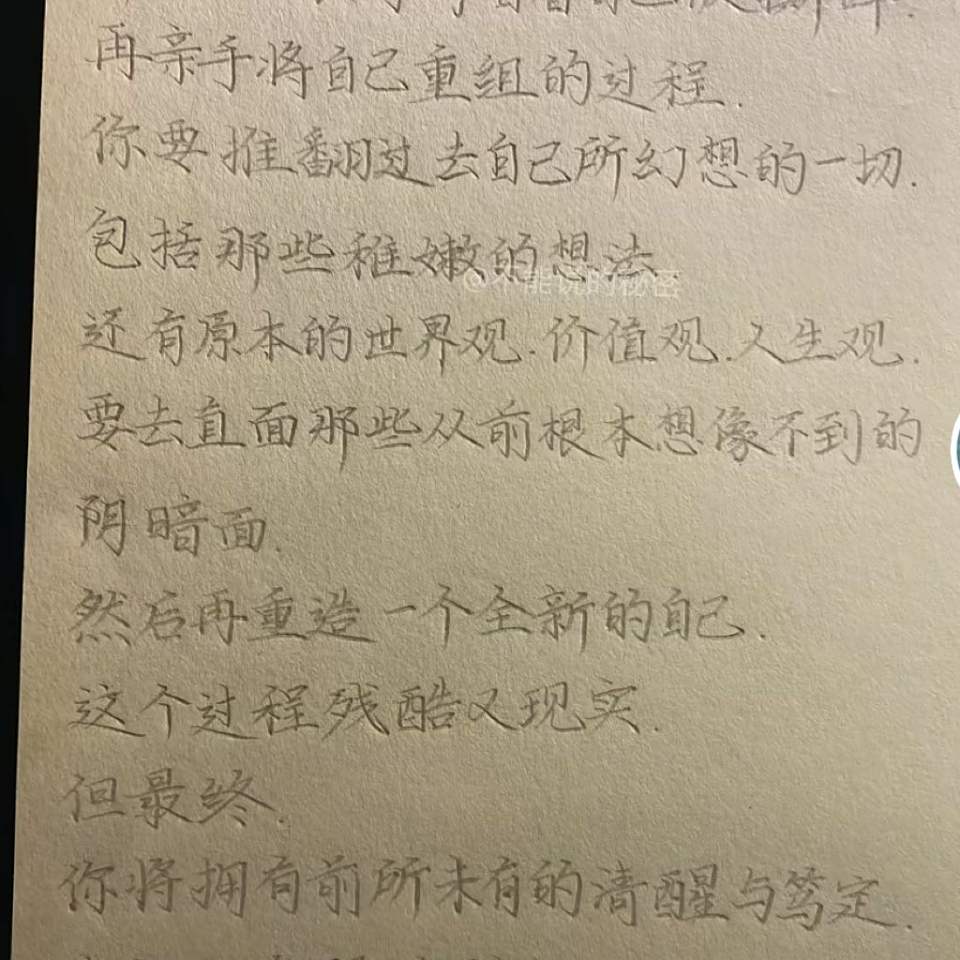 再亲手将自己重组的过程.
你要推翻过去自己所幻想的一切.
包括那些稚嫩的想法.
还有原本的世界观.价值观.人生观.
要去直面那些从前根本想像不到的
阴暗面.
然后再重造一个全新的自己.
这个过程残酷又现实.
但最终.
你将拥有前所未有的清醒与笃定.